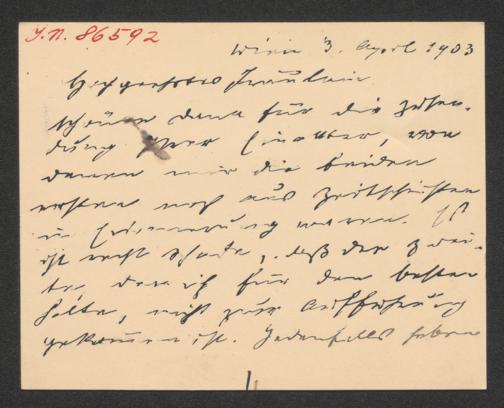 I.N. 86592
Wien 3. April 1903
Hochgeehrtes Fräulein
schönen Dank für die Zusen-
dung Ihrer Einakter, von
denen mir die beiden
ersten noch aus Zeitschriften
in Erinnerung waren. Es
ist recht schade, daß der zwei-
te, den ich für den besten
halte, nicht zur Aufführung
gekommen ist. Jedenfalls haben